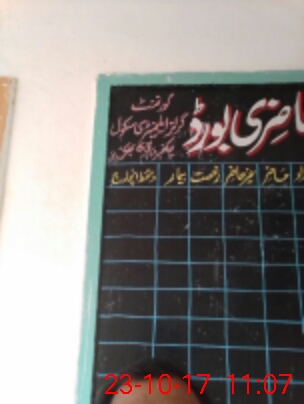 حاضری بورڈ
گورنمنٹ
گرلز ایلیمنٹری سکول
حاضر غیر حاضر رخصت بیمار دستخط انچارج
23-10-17 11:07